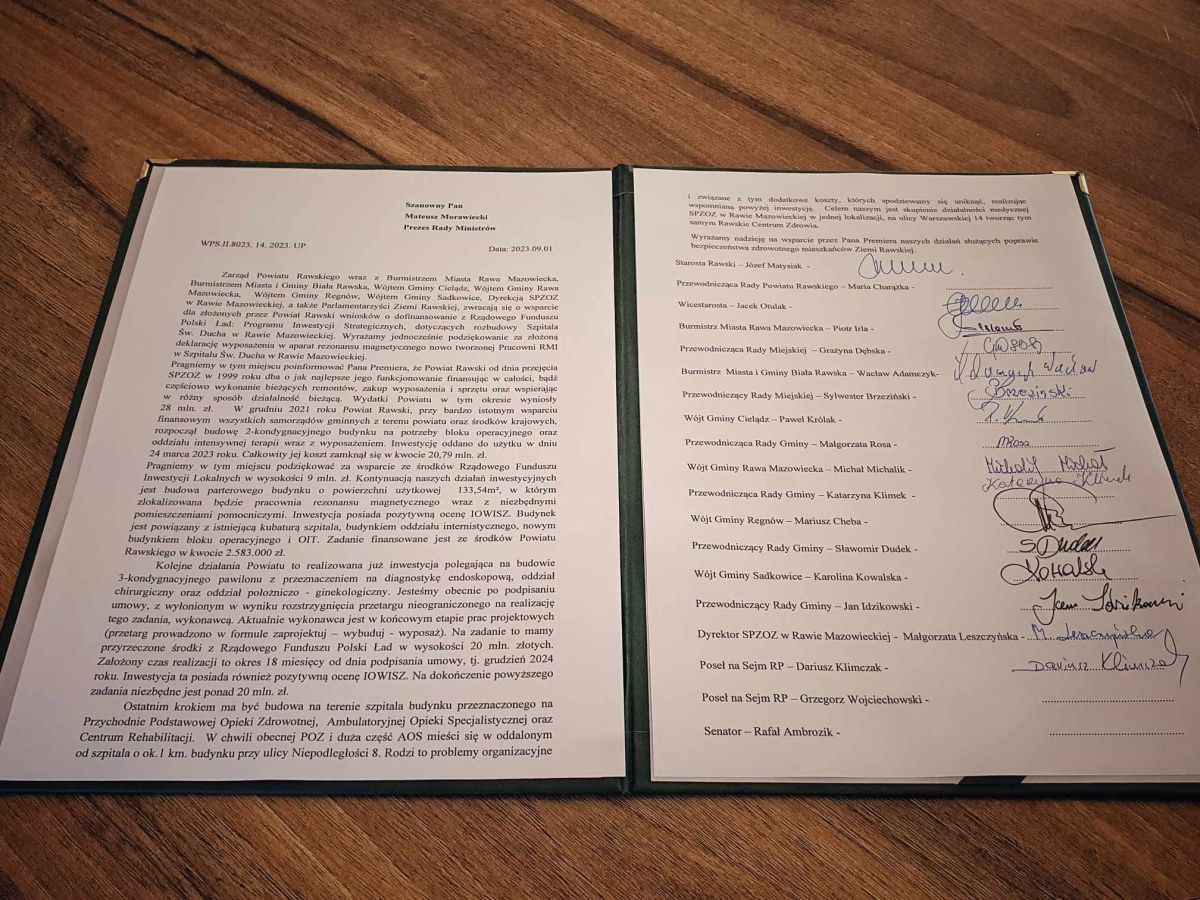 Szanowny Pan
Mateusz Morawiecki
Prezes Rady Ministrów
WPS.II.8023. 14. 2023. UP
Data: 2023.09.01
Zarząd Powiatu Rawskiego wraz z Burmistrzem Miasta Rawa Mazowiecka,
Burmistrzem Miasta i Gminy Biała Rawska, Wójtem Gminy Cielądz, Wójtem Gminy Rawa
Mazowiecka, Wójtem Gminy Regnów, Wójtem Gminy Sadkowice, Dyrekcją SPZOZ
w Rawie Mazowieckiej, a także Parlamentarzyści Ziemi Rawskiej, zwracają się o wsparcie
dla złożonych przez Powiat Rawski wniosków o dofinansowanie z Rządowego Funduszu
Polski Ład: Programu Inwestycji Strategicznych, dotyczących rozbudowy Szpitala
Św. Ducha w Rawie Mazowieckiej. Wyrażamy jednocześnie podziękowanie za złożoną
deklarację wyposażenia w aparat rezonansu magnetycznego nowo tworzonej Pracowni RMI
w Szpitalu Św. Ducha w Rawie Mazowieckiej.
Pragniemy w tym miejscu poinformować Pana Premiera, że Powiat Rawski od dnia przejęcia
SPZOZ w 1999 roku dba o jak najlepsze jego funkcjonowanie finansując w całości, bądź
częściowo wykonanie bieżących remontów, zakup wyposażenia i sprzętu oraz wspierając
w różny sposób działalność bieżącą. Wydatki Powiatu w tym okresie wyniosły
28 mln. zł. W grudniu 2021 roku Powiat Rawski, przy bardzo istotnym wsparciu
finansowym wszystkich samorządów gminnych z terenu powiatu oraz środków krajowych,
rozpoczął budowę 2-kondygnacyjnego budynku na potrzeby bloku operacyjnego oraz
oddziału intensywnej terapii wraz z wyposażeniem. Inwestycję oddano do użytku w dniu
24 marca 2023 roku. Całkowity jej koszt zamknął się w kwocie 20,79 mln. zł.
Pragniemy w tym miejscu podziękować za wsparcie ze środków Rządowego Funduszu
Inwestycji Lokalnych w wysokości 9 mln. zł. Kontynuacją naszych działań inwestycyjnych
jest budowa parterowego budynku o powierzchni użytkowej 133,54m², w którym
zlokalizowana będzie pracownia rezonansu magnetycznego wraz z niezbędnymi
pomieszczeniami pomocniczymi. Inwestycja posiada pozytywną ocenę IOWISZ. Budynek
jest powiązany z istniejącą kubaturą szpitala, budynkiem oddziału internistycznego, nowym
budynkiem bloku operacyjnego i OIT. Zadanie finansowane jest ze środków Powiatu
Rawskiego w kwocie 2.583.000 zł.
Kolejne działania Powiatu to realizowana już inwestycja polegająca na budowie
3-kondygnacyjnego pawilonu z przeznaczeniem na diagnostykę endoskopową, oddział
chirurgiczny oraz oddział położniczo - ginekologiczny. Jesteśmy obecnie po podpisaniu
umowy, z wyłonionym w wyniku rozstrzygnięcia przetargu nieograniczonego na realizację
tego zadania, wykonawcą. Aktualnie wykonawca jest w końcowym etapie prac projektowych
(przetarg prowadzono w formule zaprojektuj – wybuduj - wyposaż). Na zadanie to mamy
przyrzeczone środki z Rządowego Funduszu Polski Ład w wysokości 20 mln. złotych.
Założony czas realizacji to okres 18 miesięcy od dnia podpisania umowy, tj. grudzień 2024
roku. Inwestycja ta posiada również pozytywną ocenę IOWISZ. Na dokończenie powyższego
zadania niezbędne jest ponad 20 mln. zł.
Ostatnim krokiem ma być budowa na terenie szpitala budynku przeznaczonego na
Przychodnie Podstawowej Opieki Zdrowotnej, Ambulatoryjnej Opieki Specjalistycznej oraz
Centrum Rehabilitacji. W chwili obecnej POZ i duża część AOS mieści się w oddalonym
od szpitala o ok.1 km. budynku przy ulicy Niepodległości 8. Rodzi to problemy organizacyjne
i związane z tym dodatkowe koszty, których spodziewamy się uniknąć, realizując
wspomnianą powyżej inwestycję. Celem naszym jest skupienie działalności medycznej
SPZOZ w Rawie Mazowieckiej w jednej lokalizacji, na ulicy Warszawskiej 14 tworząc tym
samym Rawskie Centrum Zdrowia.
Wyrażamy nadzieję na wsparcie przez Pana Premiera naszych działań służących poprawie
bezpieczeństwa zdrowotnego mieszkańców Ziemi Rawskiej.
Starosta Rawski – Józef Matysiak -
Przewodnicząca Rady Powiatu Rawskiego – Maria Charążka -
Wicestarosta – Jacek Otulak -
Burmistrz Miasta Rawa Mazowiecka – Piotr Irla -
Przewodnicząca Rady Miejskiej – Grażyna Dębska -
Burmistrz Miasta i Gminy Biała Rawska – Wacław Adamczyk-
Przewodniczący Rady Miejskiej – Sylwester Brzeziński - Brzeziński
Wójt Gminy Cielądz – Paweł Królak -
Przewodnicząca Rady Gminy – Małgorzata Rosa - MRosa
Wójt Gminy Rawa Mazowiecka – Michał Michalik - Michalik Michał
Przewodnicząca Rady Gminy – Katarzyna Klimek - Katarzyna Klimek
Wójt Gminy Regnów – Mariusz Cheba -
Przewodniczący Rady Gminy – Sławomir Dudek - S. Dudek
Wójt Gminy Sadkowice – Karolina Kowalska - Kowalska
Przewodniczący Rady Gminy – Jan Idzikowski - Jan Idzikowski
Dyrektor SPZOZ w Rawie Mazowieckiej - Małgorzata Leszczyńska - M. Leszczyńska
Poseł na Sejm RP – Dariusz Klimczak - Dariusz Klimczak
Poseł na Sejm RP – Grzegorz Wojciechowski -
Senator – Rafał Ambrozik -